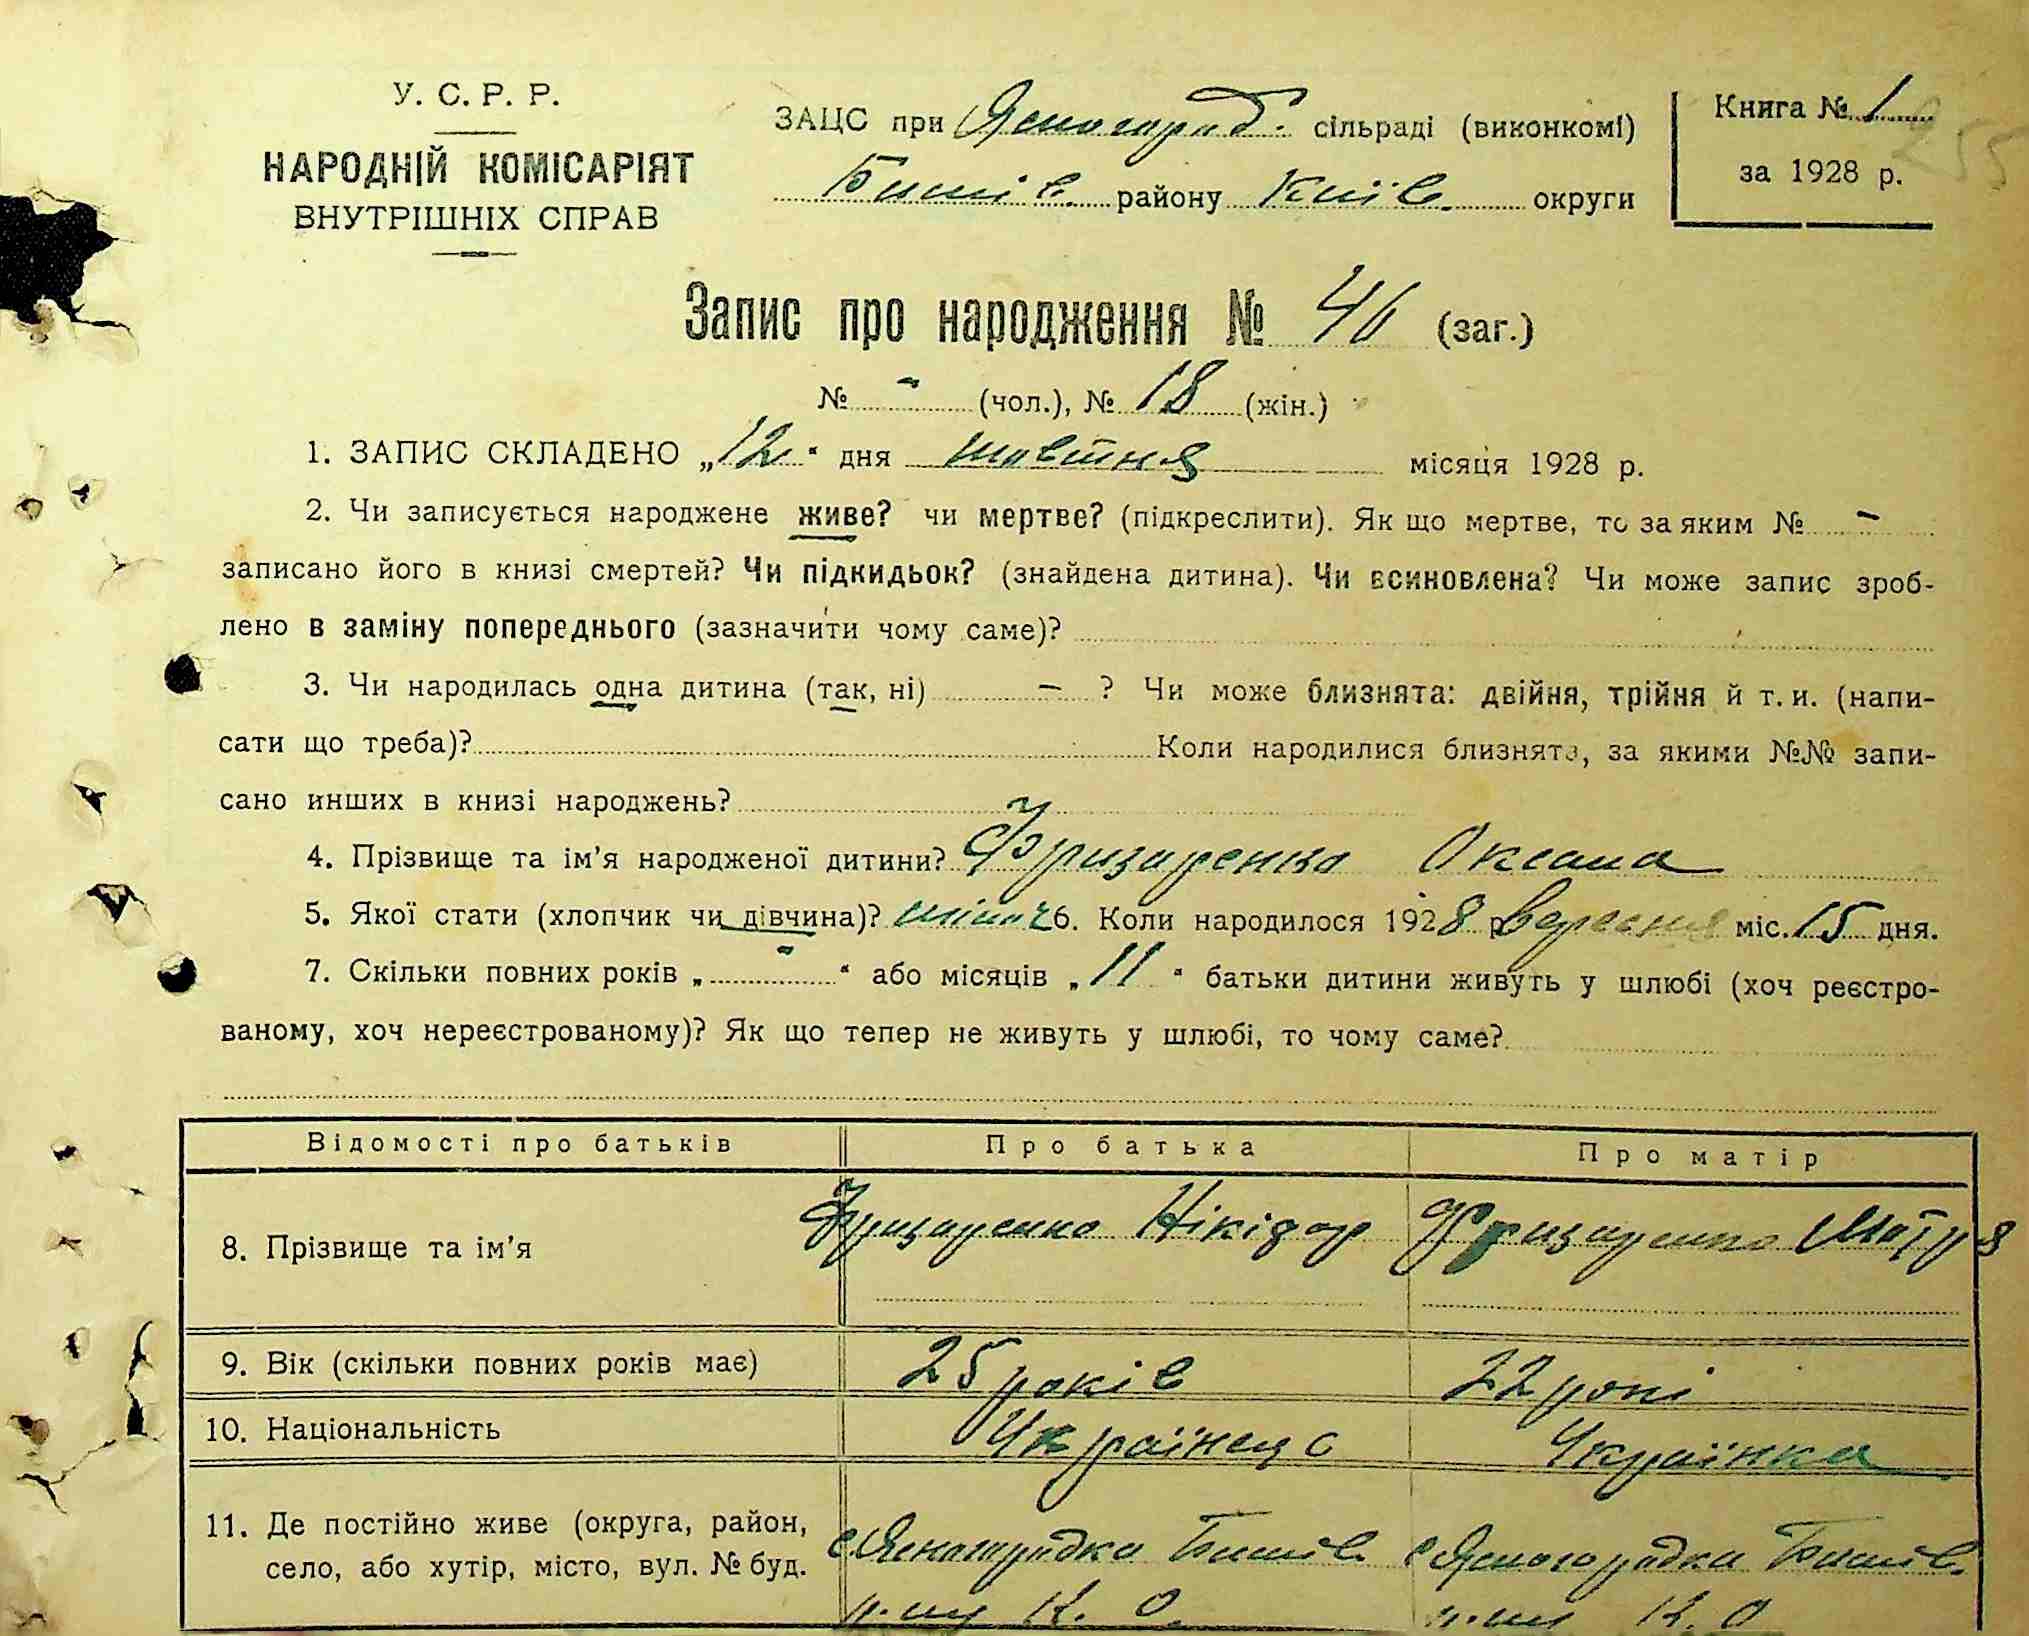 У. С. Р. Р.
НАРОДНІЙ КОМІСАРІЯТ
ВНУТРІШНІХ СПРАВ
ЗАЦС при Ясногород. сільраді (виконкомі)
Бишів. району Київ. округи
Книга № 1
за 1928 р.
255
Запис про народження № 46 (заг.)
№ " (чол.), № 18 (жін.)
1. ЗАПИС СКЛАДЕНО „12" дня жовтня місяця 1928 р.
2. Чи записується народжене живе? чи мертве? (підкреслити). Як що мертве, то за яким № –
записано його в книзі смертей? Чи підкидьок? (знайдена дитина). Чи всиновлена? Чи може запис зроб-
лено в заміну попереднього (зазначити чому саме)?
3. Чи народилась одна дитина (так, ні) – ? Чи може близнята: двійня, трійня й т. и. (напи-
сати що треба)? Коли народилися близнята, за якими №№ запи-
сано инших в книзі народжень?
4. Прізвище та ім'я народженої дитини? Оксана
5. Якої стати (хлопчик чи дівчина)? жіноч 6. Коли народилося 1928 р. вересня міс. 15 дня.
7. Скільки повних років „ " " або місяців „ 11 " батьки дитини живуть у шлюбі (хоч реєстро-
ваному, хоч нереєстрованому)? Як що тепер не живуть у шлюбі, то чому саме?
Відомості про батьків Про батька Про матір
8. Прізвище та ім'я Нікіфор Мотря
9. Вік (скільки повних років має) 25 років 22 рокі
10. Національність Українец Українка
11. Де постійно живе (округа, район, с. Ясногородка Бишів. с Ясногородка Бишів.
село, або хутір, місто, вул. № буд. р-ну К. О. р-ну К. О